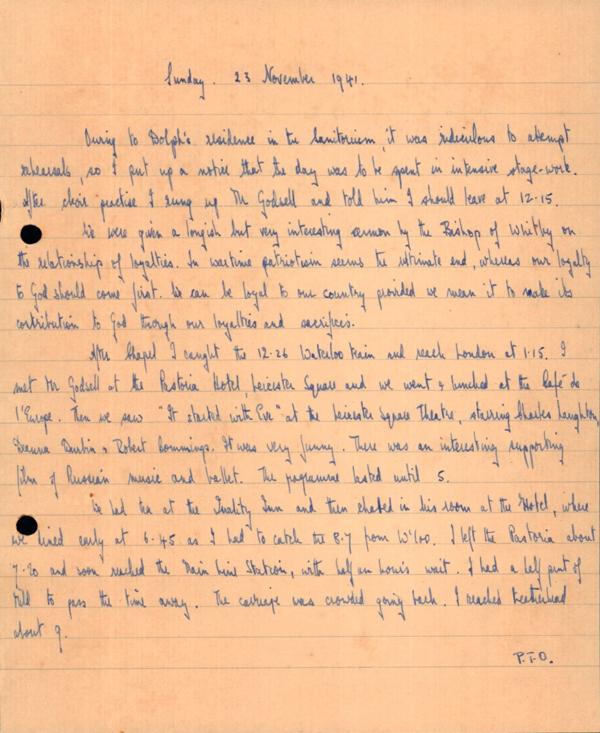 Sunday. 23 November 1941.
Owing to Dolph's residence in the Sanitorium, it was ridiculous to attempt
rehearsals, so I put up a notice that the day was to be spent in intensive stage-work.
After choir practise I rung up Mr Godsell and told him I should leave at 12.15.
We were given a longish but very interesting sermon by the Bishop of Whitby on
the relationship of loyalties. In wartime patriotism seems the ultimate end, whereas our loyalty
to God should come first. We can be loyal to our country provided we mean it to make its
contribution to God through our loyalties and sacrifices.
After Chapel I caught the 12.26 Waterloo train and reach London at 1.15. I
met Mr Godsell at the Pastoria Hotel, Leicester Square and we went & lunched at the Café de
l'Europe. Then we saw "It started with Eve" at the Leicester Square Theatre, starring Charles Laughton,
Deanna Durbin & Robert Cummings. It was very funny. There was an interesting supporting
film of Russian music and ballet. The programme lasted until 5.
We had tea at the Quality Inn and then chatted in his room at the Hotel, where
we dined early at 6.45 as I had to catch the 8.7 from W'loo. I left the Pastoria about
7.20 and soon reached the Main Line Station, with half an hour's wait. I had a half pint of
mild to pass the time away. The carriage was crowded going back. I reached Leatherhead
about 9.
P.T.O.